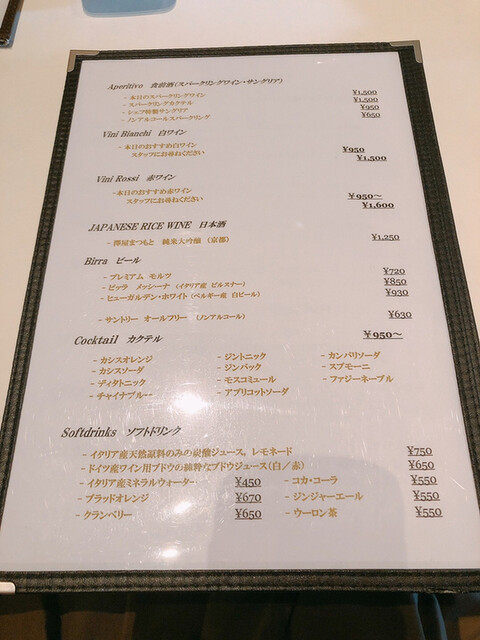 Aperitivo 食前酒(スパークリングワイン・サングリア)
- 本日のスパークリングワイン ¥1,500
- スパークリングカクテル ¥1,500
- シェフ特製サングリア ¥950
- ノンアルコールスパークリング ¥650
Vini Bianchi 白ワイン
-本日のおすすめ白ワイン ¥950
スタッフにお尋ねください ¥1,500
Vini Rossi 赤ワイン
-本日のおすすめ赤ワイン ¥950~
スタッフにお尋ねください ¥1,600
JAPANESE RICE WINE 日本酒
- 澤屋まつもと 純米大吟醸 (京都) ¥1,250
Birra ビール
- プレミアム モルツ ¥720
- ビッラ メッシーナ (イタリア産 ピルスナー) ¥850
- ヒューガルデン・ホワイト (ベルギー産 白ビール) ¥930
- サントリー オールフリー (ノンアルコール) ¥630
Cocktail カクテル ¥950~
- カシスオレンジ - ジントニック - カンパリソーダ
- カシスソーダ - ジンバック - スプモーニ
- ディタトニック - モスコミュール - ファジーネーブル
- チャイナブルー - アプリコットソーダ
Softdrinks ソフトドリンク
- イタリア産天然原料のみの炭酸ジュース, レモネード ¥750
- ドイツ産ワイン用ブドウの純粋なブドウジュース(白/赤) ¥650
- イタリア産ミネラルウォーター ¥450 - コカ・コーラ ¥550
- ブラッドオレンジ ¥670 - ジンジャーエール ¥550
- クランベリー ¥650 - ウーロン茶 ¥550